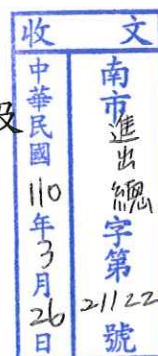 收文
南市進出總字第21122號
中華民國110年3月26日